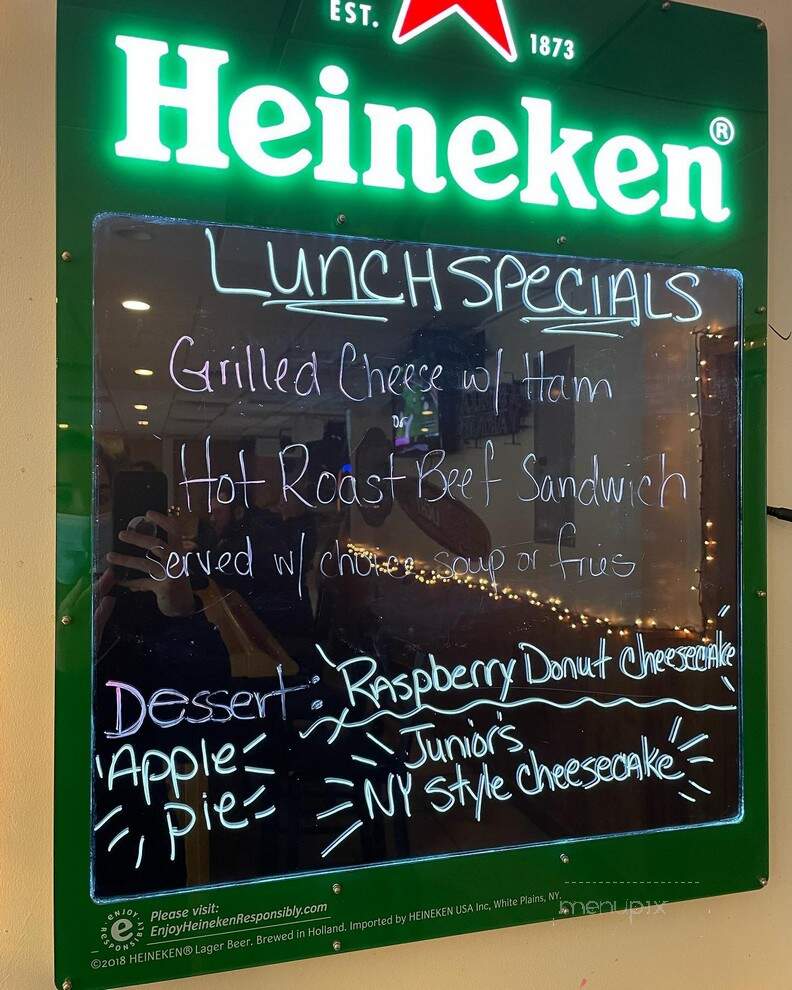 EST. 1873
Heineken®
LUNCH SPECIALS
Grilled Cheese w/ Ham
or
Hot Roast Beef Sandwich
served w/ choice soup or fries
Dessert: Raspberry Donut Cheesecake
Apple Pie
Junior's
NY Style Cheesecake
ENJOY RESPONSIBLY
Please visit:
EnjoyHeinekenResponsibly.com
©2018 HEINEKEN® Lager Beer. Brewed in Holland. Imported by HEINEKEN USA Inc, White Plains, NY.
menupix